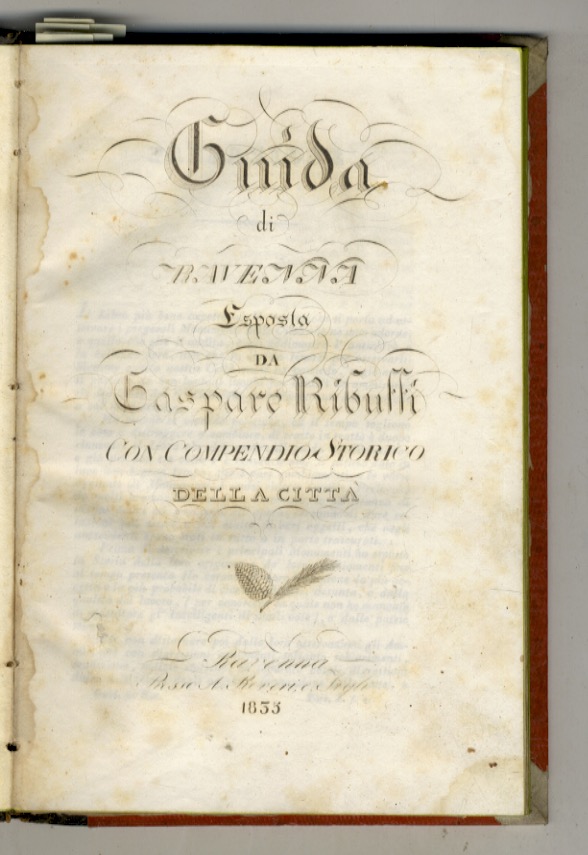 Guida
di
RAVENNA
Esposta
DA
Gaspare Ribuffi
CON COMPENDIO STORICO
DELLA CITTÀ
Ravenna
1835